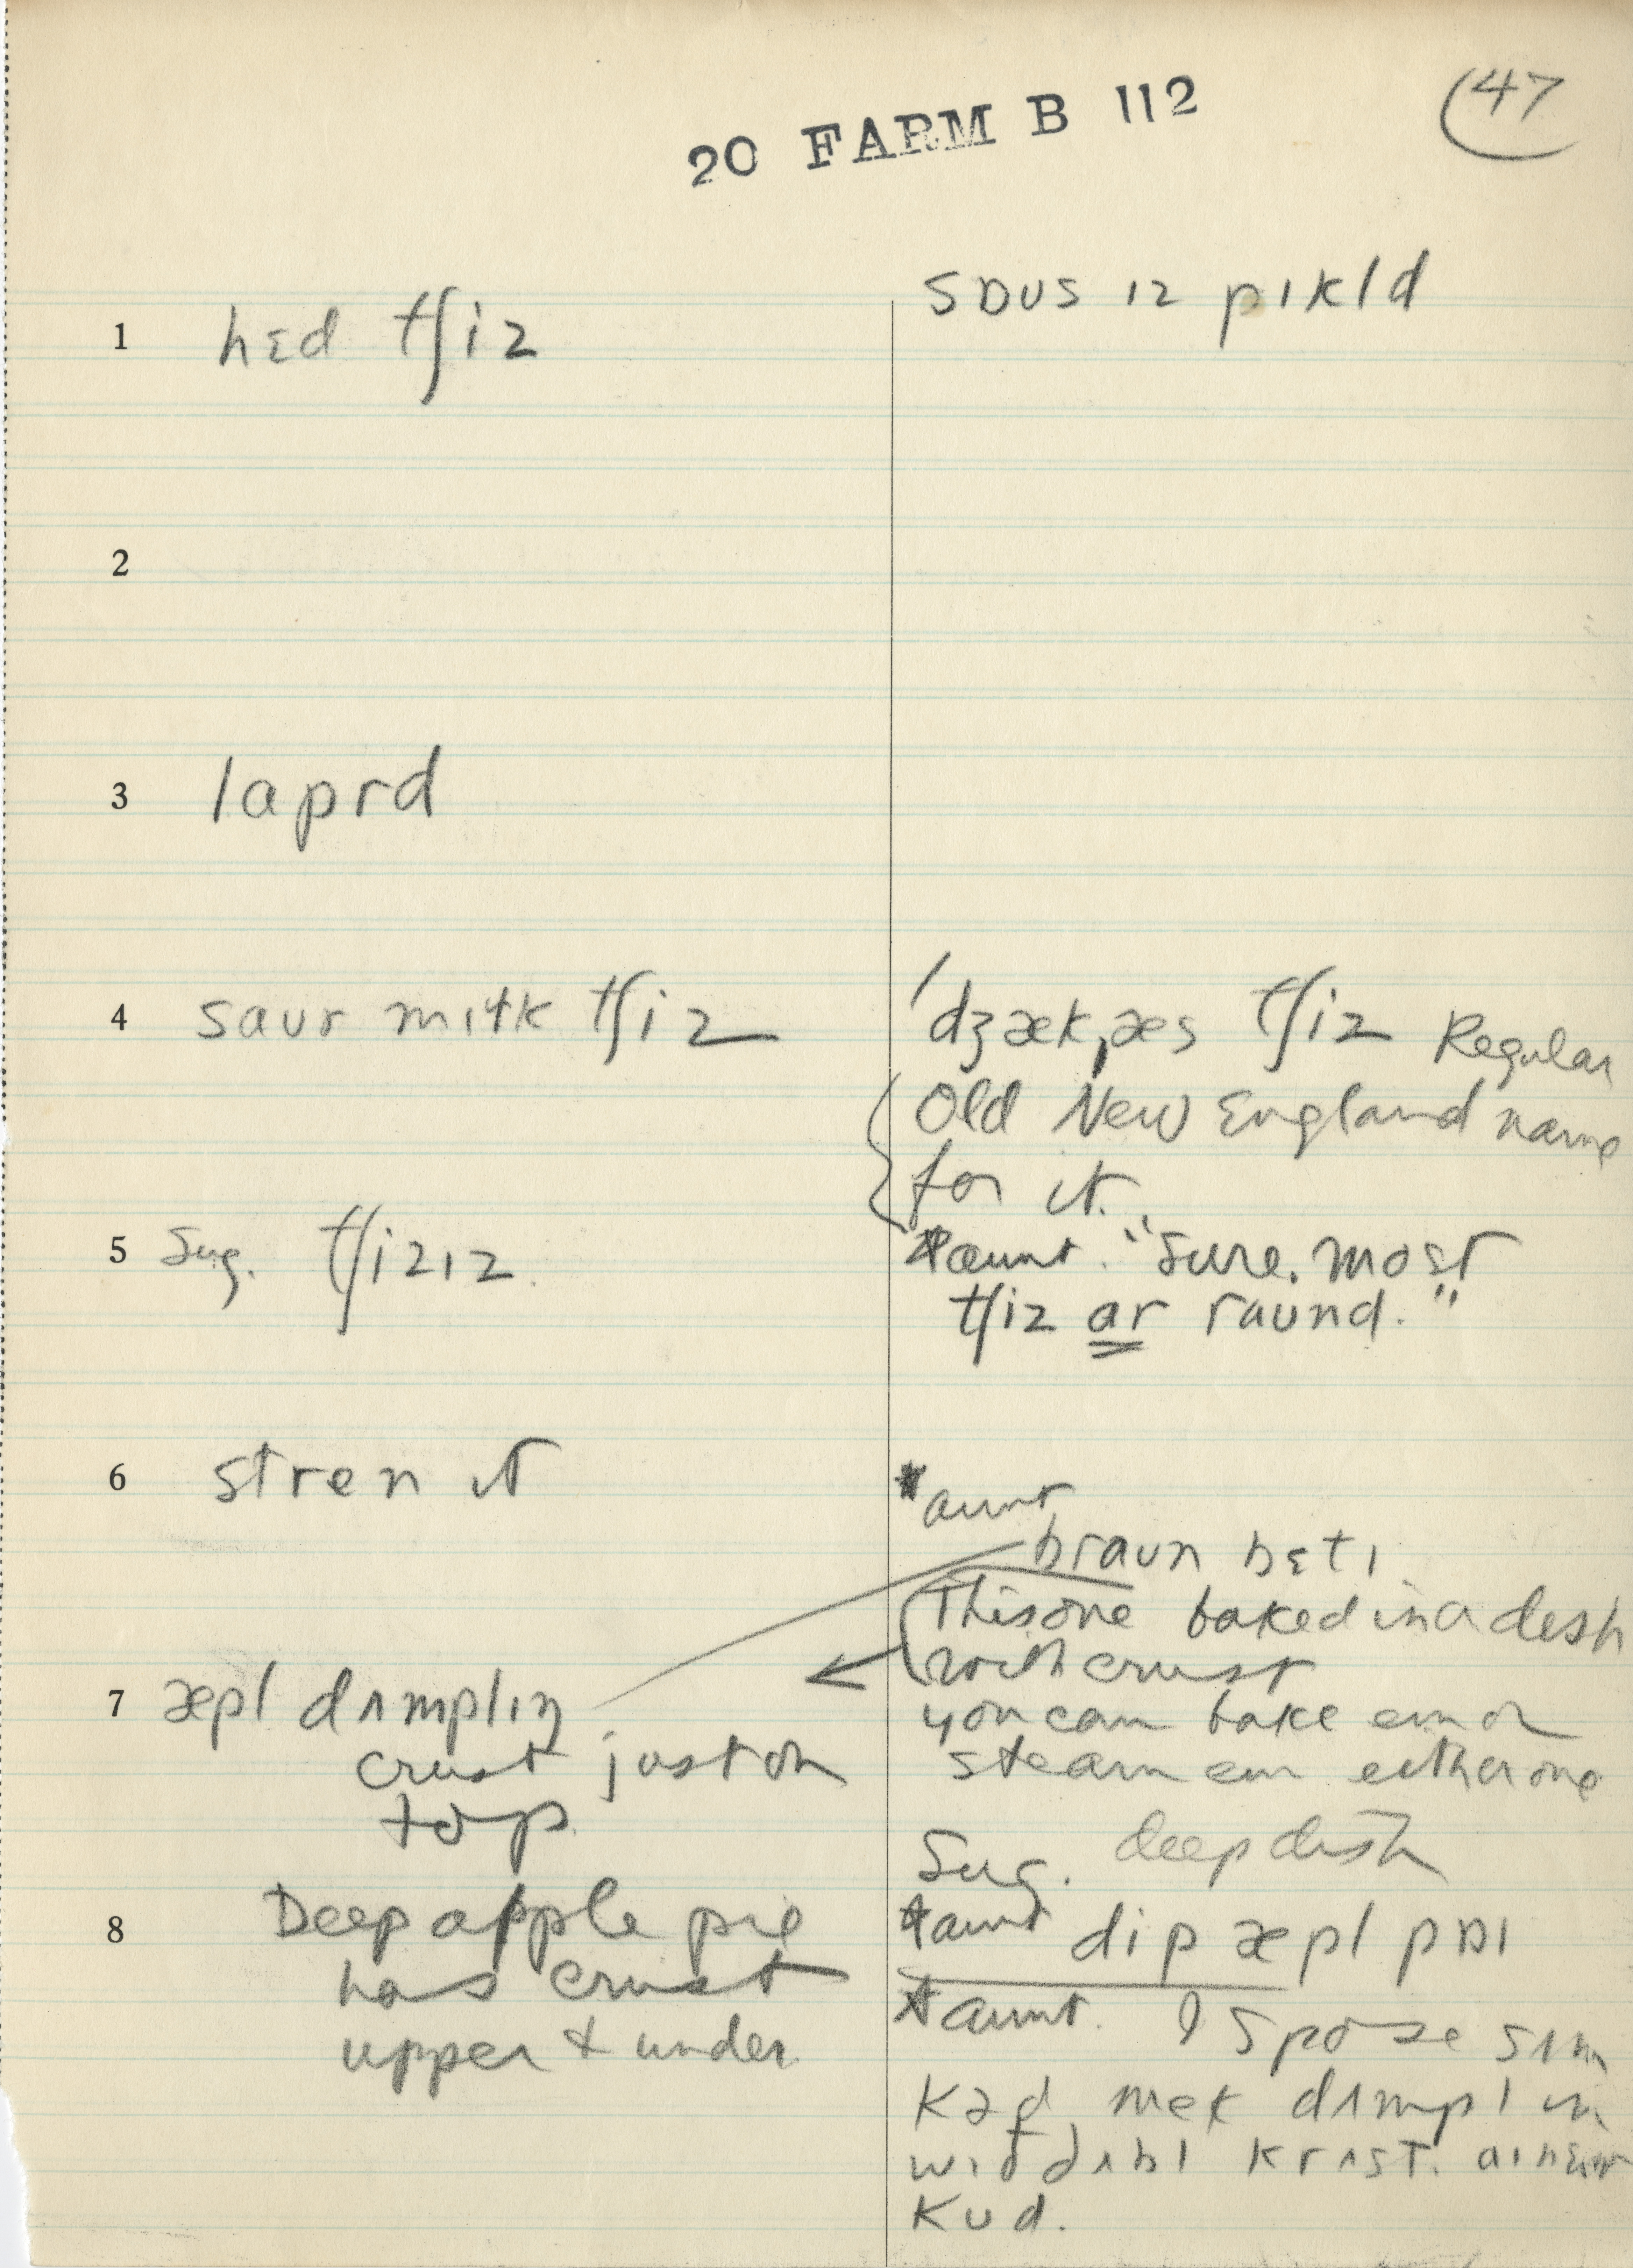 20 FARM B 112
47
1 hɛd tʃiz
sɒus ɪz pɪkld
2
3 laprd
4 saur mɪɫk tʃiz
ˈdʒækˌæs tʃiz Regular
Old New England name
for it.
5 Sug. tʃizɪz.
*aunt. "Sure. most
tʃiz ar raund."
6 stren it
*aunt
braun bɛtɪ
This one baked in a dish
with crust
7 æpl dʌmplɪŋ
crust just on
top
you can bake em or
steam em either one
Sug. deep dish
8 Deep apple pie
has crust
upper & under
*aunt dip æpl pɒɪ
*aunt. I spoze sʌm
kəd mek dʌmplin
wɪð dʌbl krʌst. aɪ nɛvr
kud.